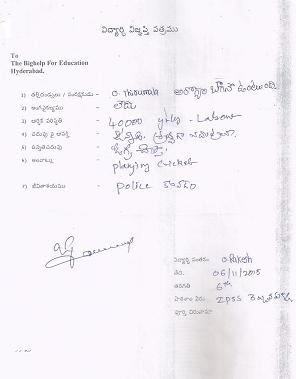 విద్యార్థి విజ్ఞప్తి పత్రము
To
The Bighelp For Education
Hyderabad.
1) తల్లిదండ్రులు / సంరక్షకుడు - O. Thirumala ఆరోగ్యం బాగానే ఉంటుంది
2) అంగవైకల్యము - లేదు
3) ఆర్థిక పరిస్థితి - 40000 yrly - Labour
4) చదువు పై ఆసక్తి -
5) ప్రస్తుతచదువు -
6) అలవాట్లు - playing cricket
7) జీవితాశయము - police కావడం
విద్యార్థి సంతకం O. Rakesh
తేది. 06/11/2015
తరగతి 6th
పాఠశాల పేరు ZPSS
పూర్తి చిరునామా